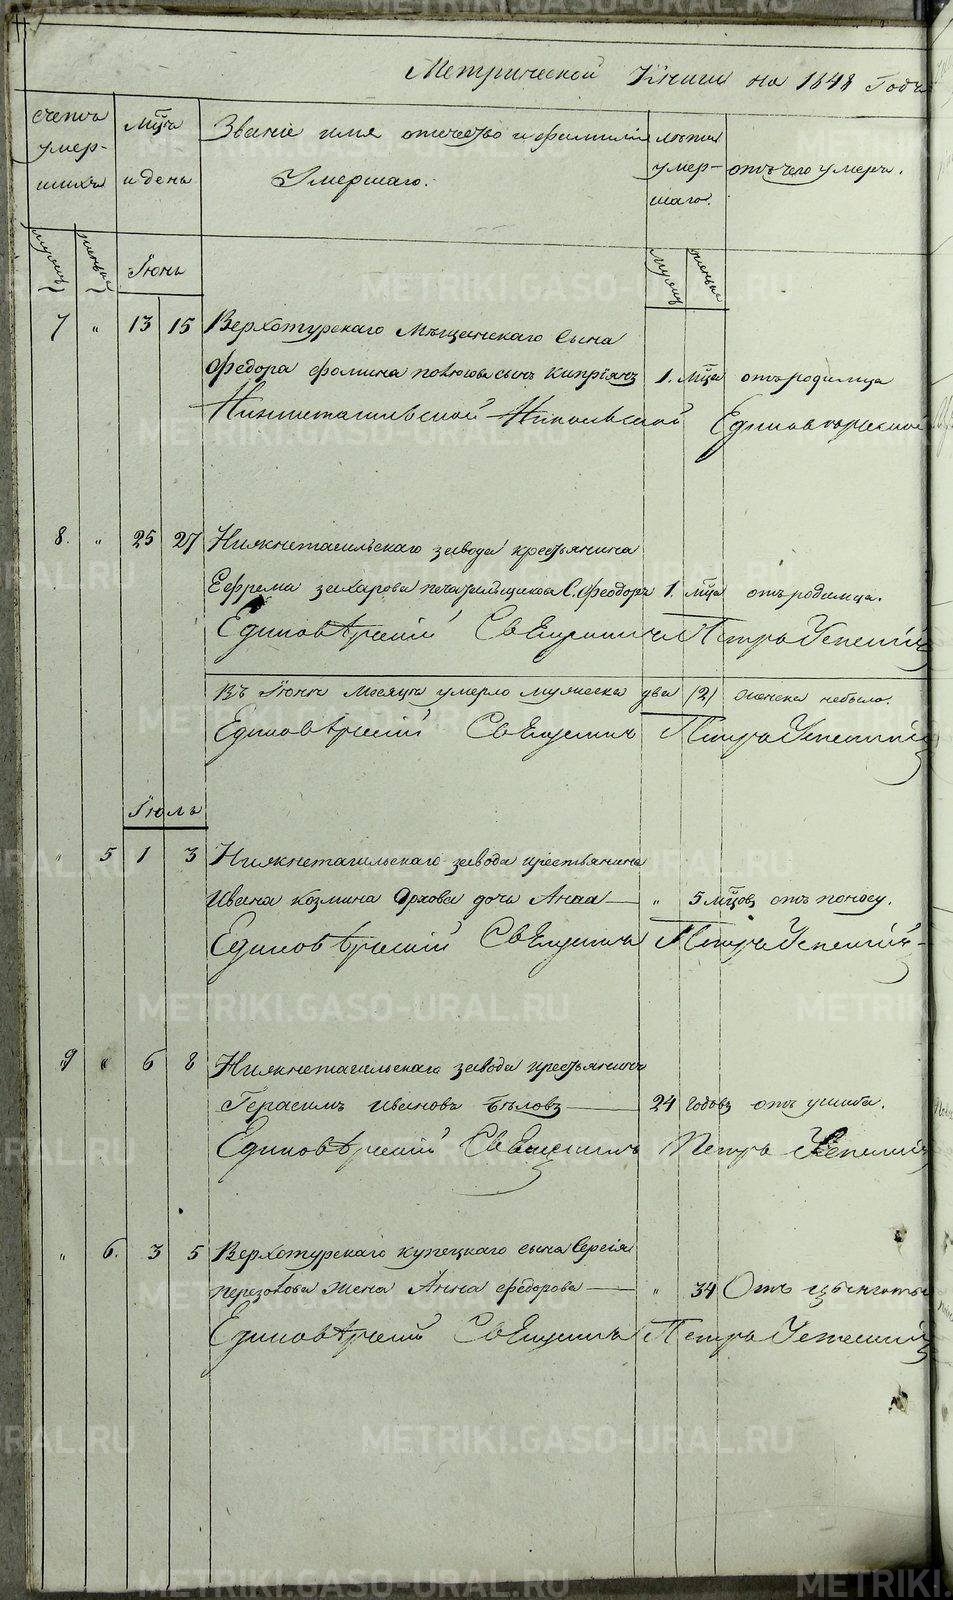 Метрической Книги на 1848 Годъ
счетъ умер- шихъ
Мца и день
Званіе имя отчество и фамилія Умершаго.
лѣта умер- шаго.
отъ чего умеръ.
мужск женск
Іюнь
мужск женск
7 " 13 15 Верхотурскаго Мѣщанскаго Сына
Федора Фомина сынъ Кипріянъ 1. Мца отъ родимца
Нижнетагильской Никольской Единоверческой
8. " 25 27 Нижнетагильскаго завода крестьянина
Ефрема Захарова Печатальщикова С. Феодоръ 1. мца отъ родимца.
Единовѣрческій Священникъ Петръ Успенскій
Въ Іюнѣ Месяцѣ умерло мужеска два (2) женска небыло.
Единовѣрческій Священникъ Петръ Успенскій
Іюль
" 5 1 3 Нижнетагильскаго завода крестьянина
Ивана Козмина Орхова дочь Анна — " 5 мцовъ отъ поносу.
Единовѣрческій Священникъ Петръ Успенскій
9 " 6 8 Нижнетагильскаго завода крестьянинъ
Герасимъ Ивановъ Бѣловъ — 24 Годовъ отъ ушиба.
Единовѣрческій Священникъ Петръ Успенскій
" 6. 3 5 Верхотурскаго купецкаго сына Сергія
жена Анна Федорова — " 34 Отъ цынготы
Единовѣрческій Священникъ Петръ Успенскій
METRIKI.GASO-URAL.RU